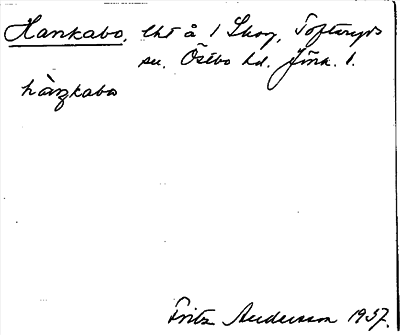 Hankabo, lht å 1 Skog, Tofteryds
sn. Östbo hd. Jönk. l.
hàŋkabo
Fritz Andersson 1937.